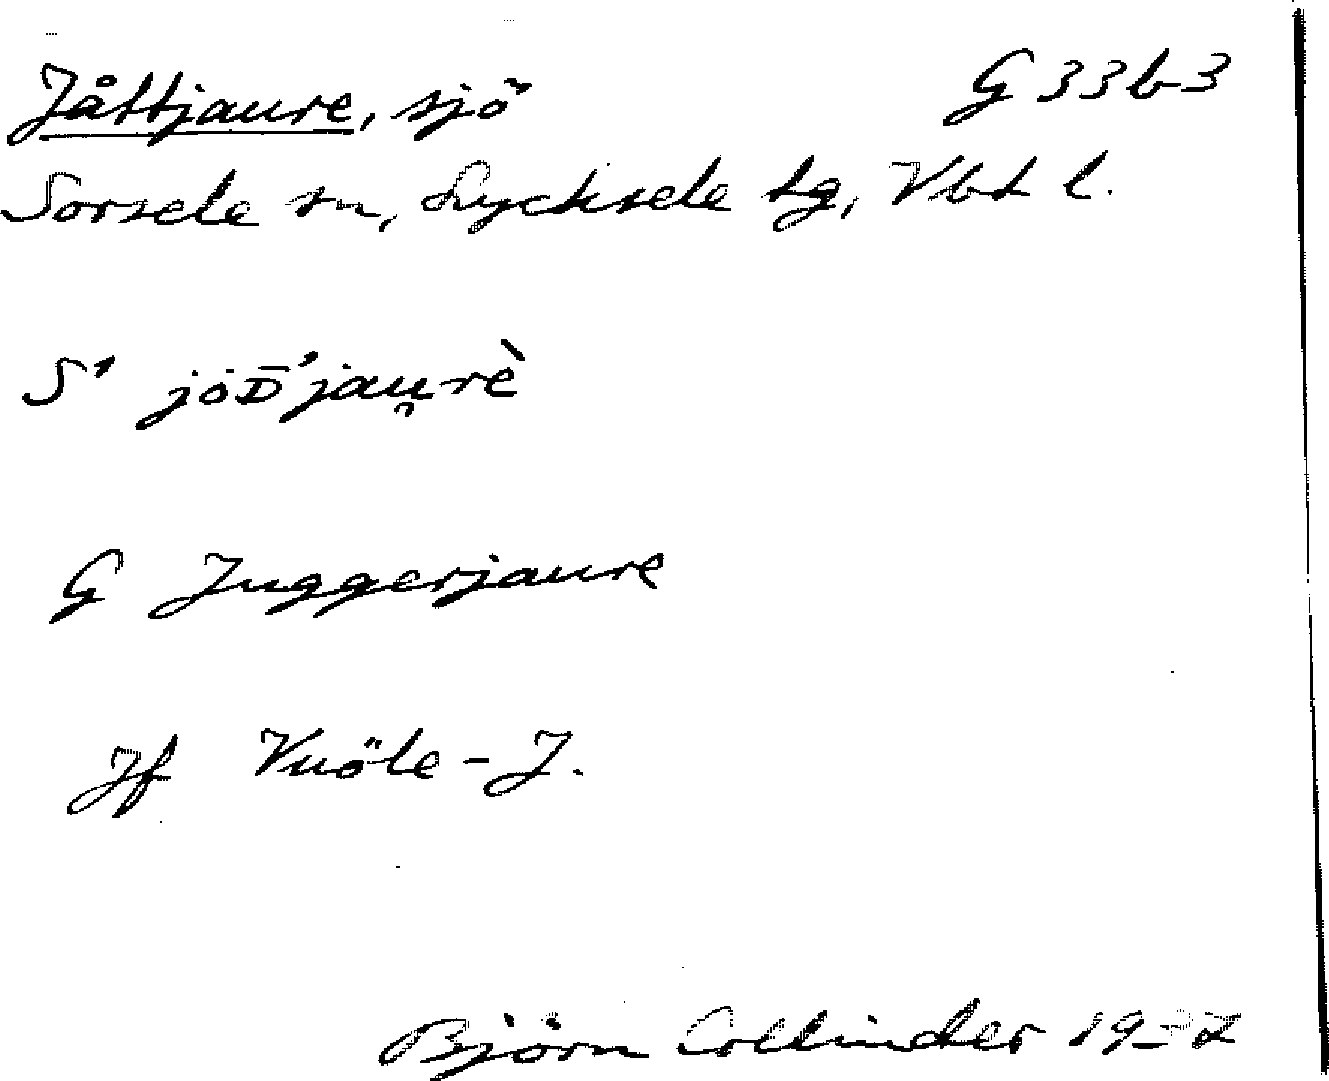 Jåttjaure, sjö G 33b3
Sorsele sn, Lycksele tg, Vbt l.
S' jòᴅ̄'jau̯rè
G Juggerjaure
Jf Vuöle-J.
Björn Collinder